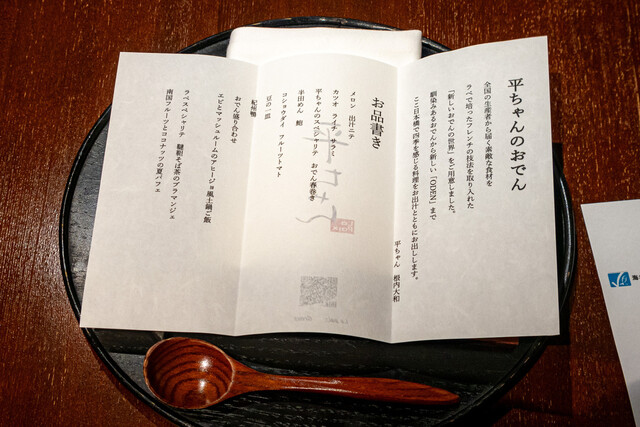 平ちゃんのおでん
全国の生産者から届く素敵な食材を
ラペで培ったフレンチの技法を取り入れた
「新しいおでんの世界」をご用意しました。
馴染みあるおでんから新しい「ODEN」まで
ここ日本橋で四季を感じる料理をお出汁とともにお出しします。
平ちゃん 根内大和
お品書き
メロン 出汁ニテ
カツオ ライチ サラミ
平ちゃんのスペシャリテ おでん春巻き
半田めん 鮑
コショウダイ フルーツトマト
豆の一皿
紀州鴨
おでん盛り合わせ
エビとマッシュルームのアヒージョ風土鍋ご飯
ラペスペシャリテ 韃靼そば茶のブラマンジェ
南国フルーツとココナッツの夏パフェ
平ちゃん